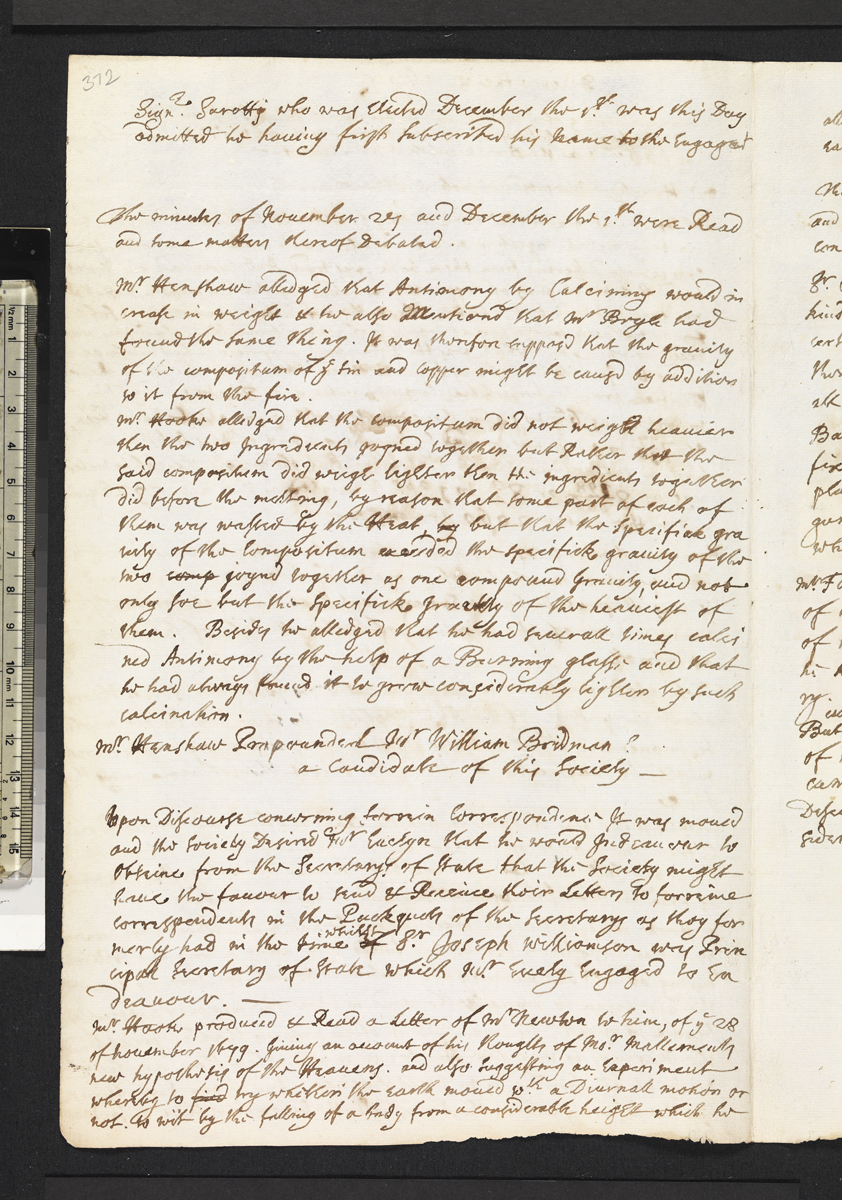 372
Sign.r Sarotti who was Elected December the 1.st was this Day
admitted he having first subscribed his Name to the Engagmt
The minutes of November 27 and December the 1.st were Read
and some matters thereof Debated.
Mr. Henshaw alledged that Antimony by Calcining would in
crease in weight & he also Mentiond that Mr Boyle had
found the same thing. It was therefore supposd that the gravity
of the compositum of ye tin and copper might be causd by addition
to it from the fire.
Mr. Hooke alledged that the compositum did not weigh heavier
then the two Ingredients joyned together but Rather that the
said compositum did weigh lighter then the ingredients together
did before the melting, by reason that some part of each of
them was wasted by the Heat, by but that the specifick gra
vity of the Compositum exceeded the specifick gravity of the
two comp joynd together as one compound Gravity, and not
only soe but the specifick gravity of the heaviest of
them. Besides he alledged that he had severall times calci
ned Antimony by the help of a Burning glasse and that
he had always found it to grow considerably lighter by such
calcination.
Mr. Henshaw Propounded Mr William Bridman
a Candidate of this Society
Upon Discourse concerning forrein Correspondence It was moved
and the Society Desired Mr Evelyn that he would Indeavour to
Obteine from the Secretarys of State that the Society might
have the favour to send & Receive their Letters to forreine
correspondents in the Packquets of the Secretarys as they for
merly had in the time of whilst Sr. Joseph Williamson was Prin
cipall Secretary of State which Mr Evely Engaged to En
deavour.
Mr. Hooke produced & Read a Letter of Mr Newton to him, of ye 28
of november 1679. Giving an account of his thoughts of Mor. Mallements
new hypothesis of the Heavens. and also suggesting an Experiment
whereby to find try whither the earth moved wth a Diurnall motion or
not. to wit by the falling of a body from a considerable height which he